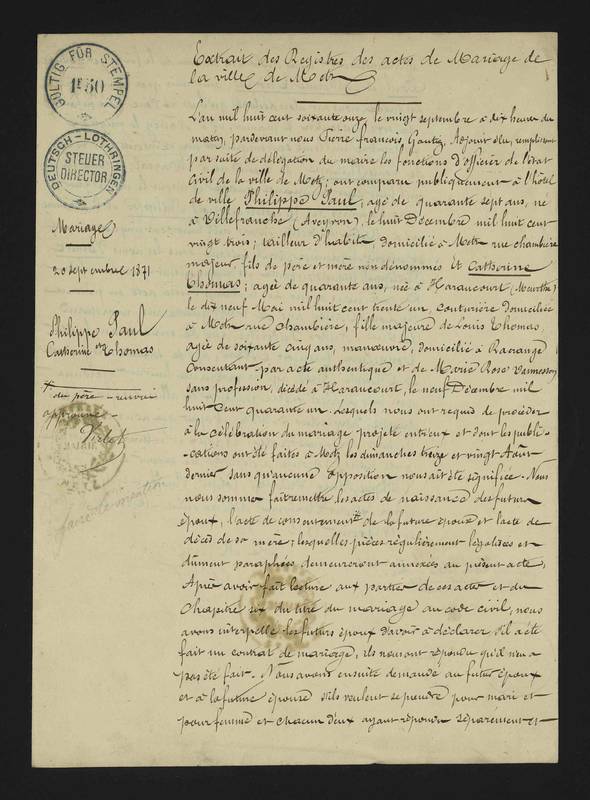 GÜLTIG FÜR STEMPEL
1F50
DEUTSCH-LOTHRINGEN
STEUER
DIRECTOR
Mariage
20 septembre 1871
Philippe Paul
et
Catherine Thomas
* du père - renvoi
approuvé -
MAIRIE
Extrait des Registres des actes de Mariage de
la ville de Metz
L'an mil huit cent soixante onze, le vingt septembre à dix heures du
matin, pardevant nous Pierre François Gautiez, Adjoint élu, remplissant
par suite de délégation du maire les fonctions d'officier de l'état
civil de la ville de Metz; ont comparu publiquement à l'hôtel
de ville Philippe Paul, agé de quarante sept ans, né
à Villefranche (Aveyron), le huit Décembre mil huit cent
vingt trois; tailleur d'habits domicilié à Metz rue chambière
majeur, fils de père et mère non dénommés Et Catherine
Thomas; agée de quarante ans, née à Haraucourt (Meurthe)
le dix neuf Mai mil huit cent trente un, couturière domiciliée
à Metz rue Chambière, fille majeure de Louis Thomas,
agé de soixante cinq ans, manœuvre, domicilié à
Consentant par acte authentique et de Marie Rose
sans profession, décédé à Haraucourt, le neuf Décembre mil
huit Cent quarante un. Lesquels nous ont requis de procéder
à la célébration du mariage projeté entr'eux et dont les publi-
-cations ont été faites à Metz les dimanches treize et vingt Août
dernier sans qu'aucune opposition nous ait été signifiée. Nous
nous sommes fait remettre les actes de naissance des futurs
époux, l'acte de consentement * de la future épouse et l'acte de
décès de sa mère; lesquelles pièces régulièrement légalisées et
dûment paraphées demeureront annexées au présent acte.
Après avoir fait lecture aux parties de ces actes et du
Chapitre six du titre du mariage au code civil, nous
avons interpellé les futurs époux d'avoir à déclarer s'il a été
fait un contrat de mariage, ils nous ont répondu qu'il n'en a
pas été fait. Nous avons ensuite demandé au futur époux
et à la future épouse s'ils veulent se prendre pour mari et
pour femme et chacun d'eux ayant répondu séparément et